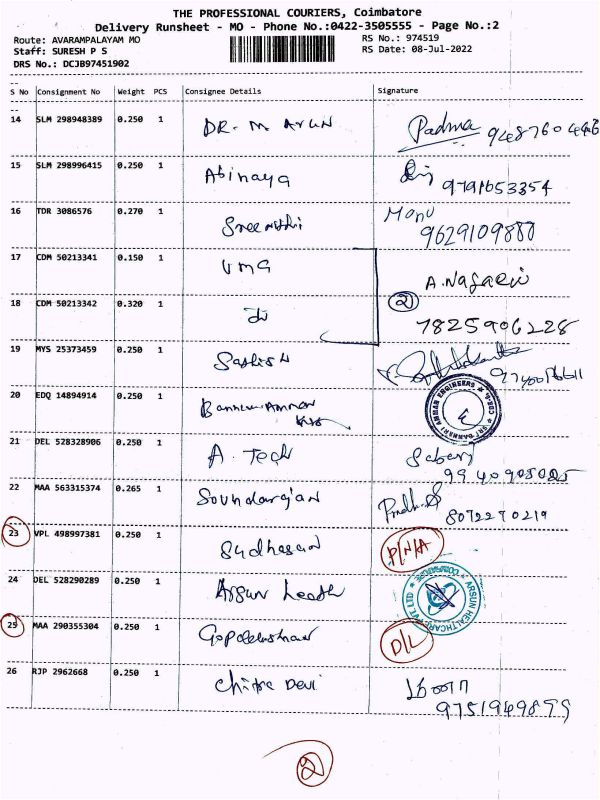 THE PROFESSIONAL COURIERS, Coimbatore
Delivery Runsheet - MO - Phone No.:0422-3505555 - Page No.:2
Route: AVARAMPALAYAM MO RS No.: 974519
Staff: SURESH P S RS Date: 08-Jul-2022
DRS No.: DCJB97451902
S No Consignment No Weight PCS Consignee Details Signature
14 SLM 298948389 0.250 1 DR. M ARUN Padma
15 SLM 298996415 0.250 1 Abinaya 9791653354
16 TDR 3086576 0.270 1 Mono
9629109880
17 CDM 50213341 0.150 1 UMA A.Nagaraj
18 CDM 50213342 0.320 1 2
7825906228
19 MYS 25373459 0.250 1 Sathish
20 EDQ 14894914 0.250 1 Bannari Amman SRI BANNARI AMMAN ENGINEERS
21 DEL 528328906 0.250 1 A. Tech
22 MAA 563315374 0.265 1 Soundarajan 8072270219
23 VPL 498997381 0.250 1 Sudhasan P/N/A
24 DEL 528290289 0.250 1 Arsun Health ARSUN HEALTHCARE PVT LTD COIMBATORE
25 MAA 290355304 0.250 1 D/L
26 RJP 2962668 0.250 1 Chitra Devi
9751949899
2